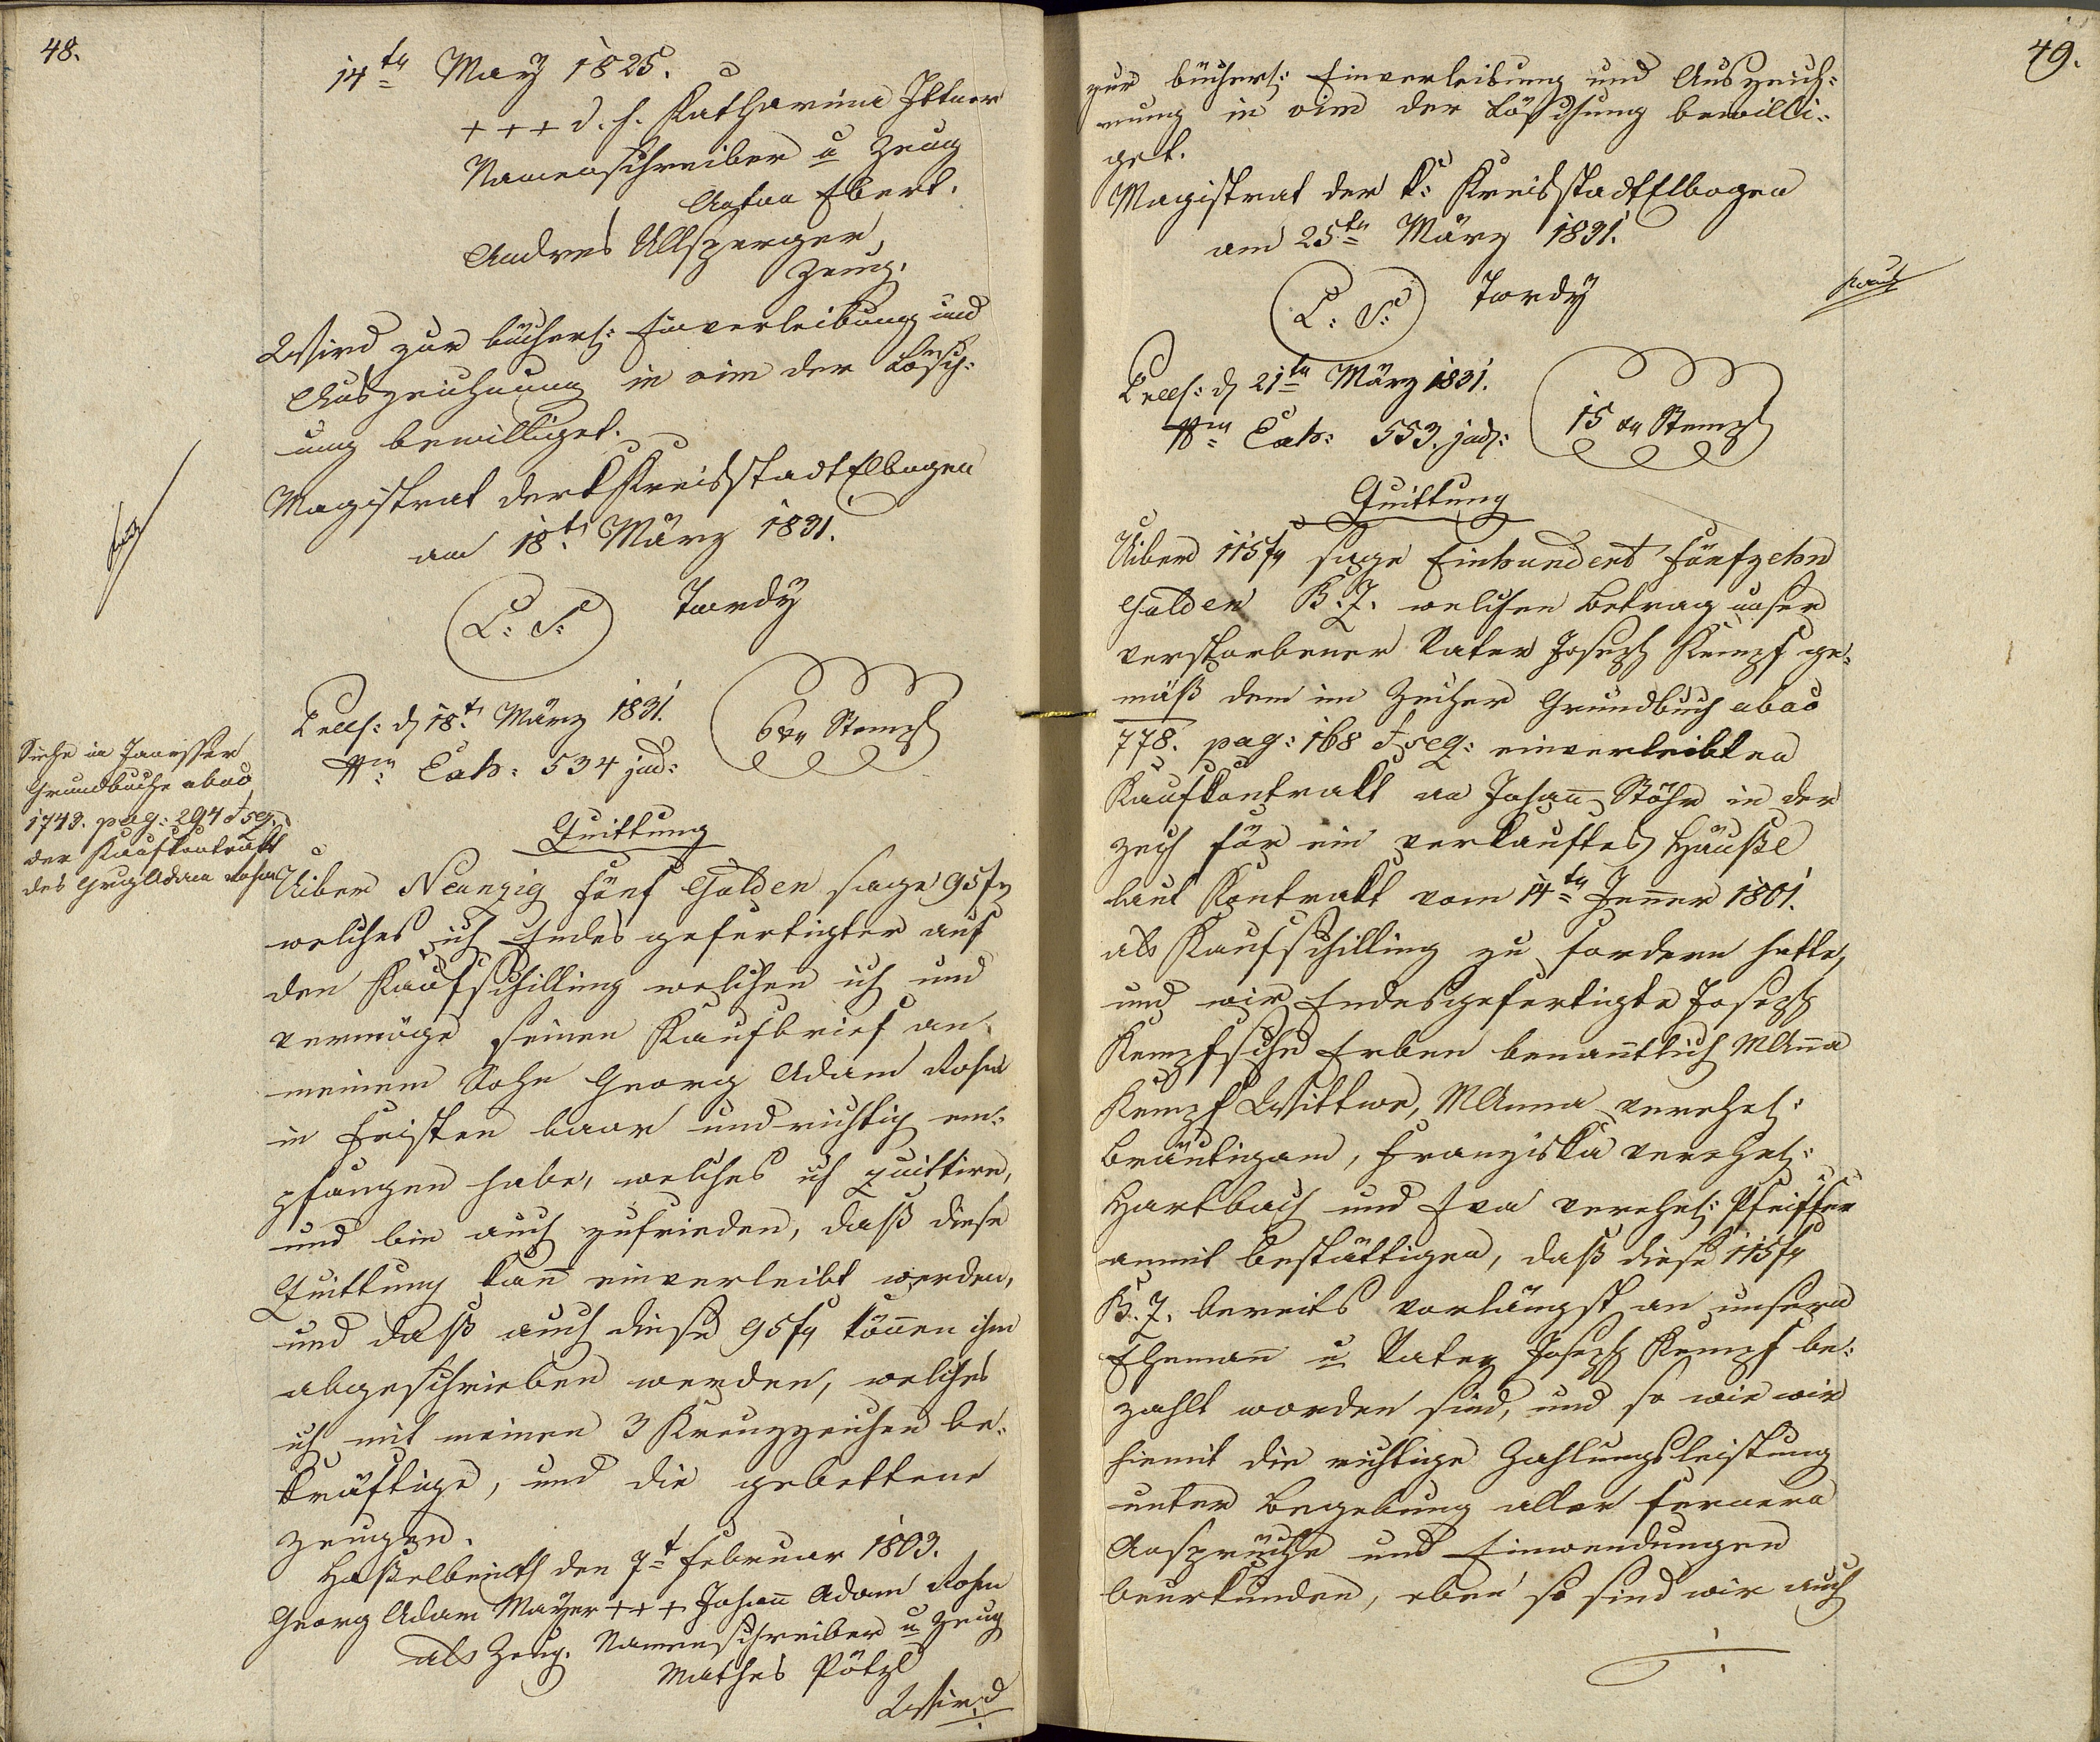 48.
14ten May 1825.
+++ d. h. Katharina Ittner
Namenschreiber u Zeug
Anton Ebert.
Andres Ullsperger,
Zeug.
Wird zur bücherl: Einverleibung und
Auszeichnung in vim der Lösch:
ung bewilliget.
Magistrat der k Kreisstadt Elbogen
am 18t. März 1831.
L: S: Tordy
Siehe in
Grundbuche abao
1743. pag: 294 & seq.
der Kaufkontrakt
des Grg Adam Rohm
Prls: d 18t. März 1831.
Nro Exh: 534 jud:
6 xr Stempl
Quittung
Uiber Neunzig fünf Gulden sage 95 fr
welches ich Endes gefertigter auf
den Kaufschilling welchen ich und
vermöge seinen Kaufbrief an
meinem Sohn Georg Adam Rohm
in Fristen baar und richtig em:
pfangen habe, welches ich quittire,
und bin auch zufrieden, daß diese
Quittung kann einverleibt werden,
und daß auch diese 95 fr können ihm
abgeschrieben werden, welches
ich mit meinen 3 Kreuzzeichen be:
kräftige, und die gebettene
Zeugen.
den 7t Februar 1803.
Georg Adam Mayer +++ Johann Adam Rohm
als Zeug. Namenschreiber u Zeug
Mathes Pötzl
Wird
49.
zur bücherl: Einverleibung und Auszeich:
nung in vim der Löschung bewilli:
get.
Magistrat der k: Kreisstadt Elbogen
am 25ten März 1831.
L: S: Tordy
Prls: d 21ten März 1831.
Nro Exh: 553. jud:
15 xr Stempl
Quittung
Uiber 115 fr sage Einhundert fünfzehn
Gulden B. Z. welchen Betrag unser
verstorbener Vater Joseph Kempf ge:
mäß dem im Zecher Grundbuch abao
778. pag: 168 & seq: einverleibten
Kaufkontrakt an Johann Stöhr in der
Zech für ein verkauftes Häußl
laut Kontrakt vom 14ten Jenner 1801.
als Kaufschilling zu fordern hatte,
und wir Endesgefertigte Joseph
Kempfsche Erben benanntlich MAnna
Kempf Wittwe, MAnna verehel:
Bräutigam, Franziska verehel:
Hartbach und Eva verehel: Pfeiffer
anmit bestättigen, daß diese 115 fr
B. Z. bereits vorlängst an unsern
Ehemann u Vater Joseph Kempf be:
zahlt worden sind, und so wie wir
hiemit die richtige Zahlungsleistung
unter Begebung aller fernern
Ansprüche und Einwendungen
beurkunden, eben so sind wir auch